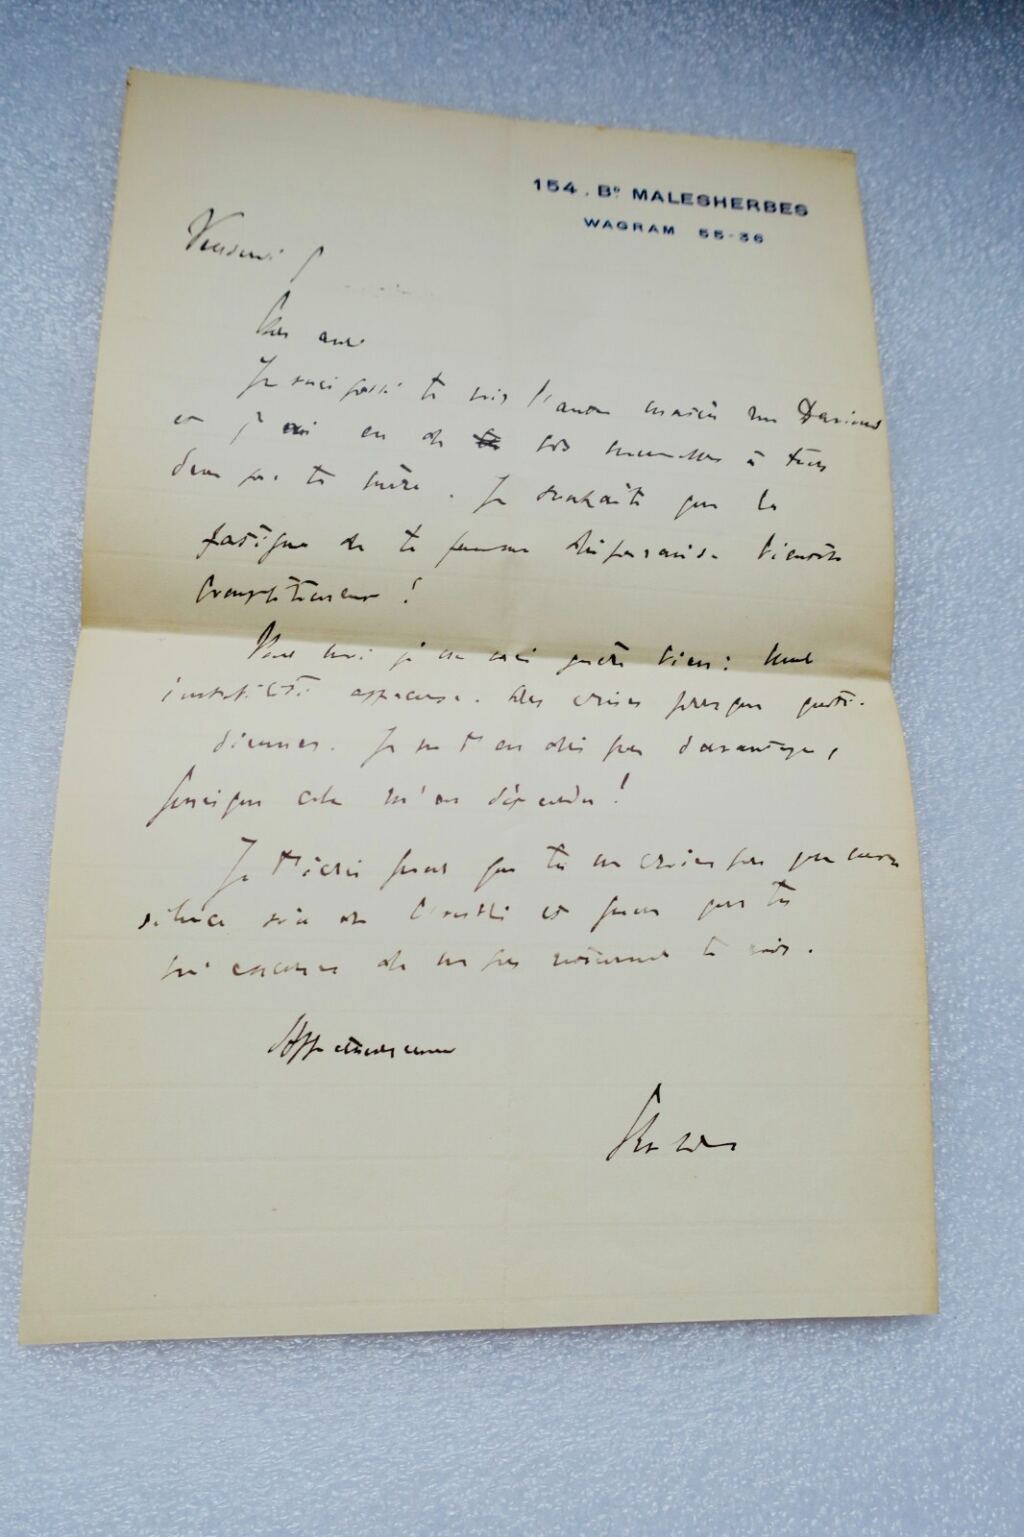 154. Bᵈ MALESHERBES
WAGRAM 55-36
Vendredi
Cher ami
Je suis passé te voir l'autre matin rue Darius
et j'ai eu de tes nouvelles à tous
deux par ta mère. Je souhaite que la
fatigue de ta femme disparaisse bientôt
complètement !
Pour moi je ne vais guère bien : Une
instabilité affreuse. Des crises presque quoti-
diennes. Je ne t'en dis pas davantage,
puisque cela m'est défendu !
Je t'écris pour que tu ne croies pas que mon
silence soit de l'oubli et pour que tu
m'excuses de ne pas retourner te voir.
Affectueusement